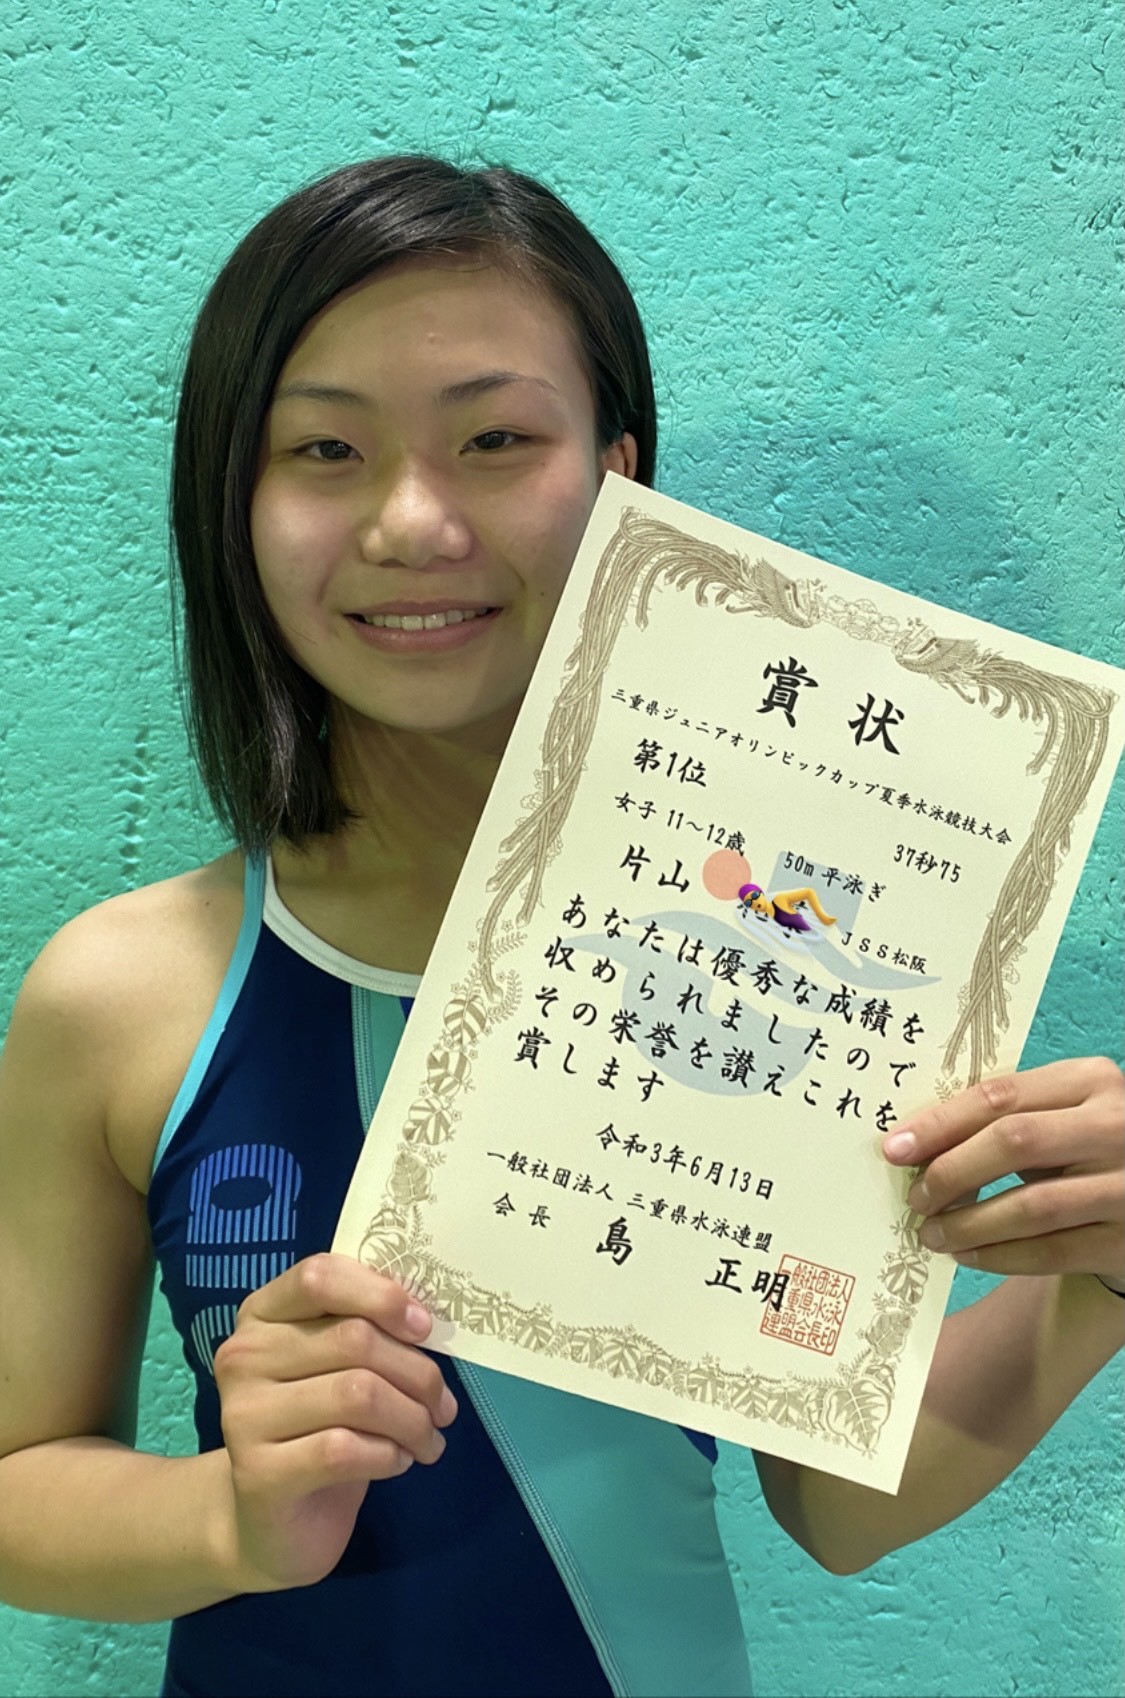 賞状
三重県ジュニアオリンピックカップ夏季水泳競技大会
第1位
37秒75
女子 11～12歳 50m 平泳ぎ
片山
JSS松阪
あなたは優秀な成績を
収められましたので
その栄誉を讃えこれを
賞します
令和3年6月13日
一般社団法人 三重県水泳連盟
会長 島 正明
一般社団法人
三重県水泳
連盟会長印